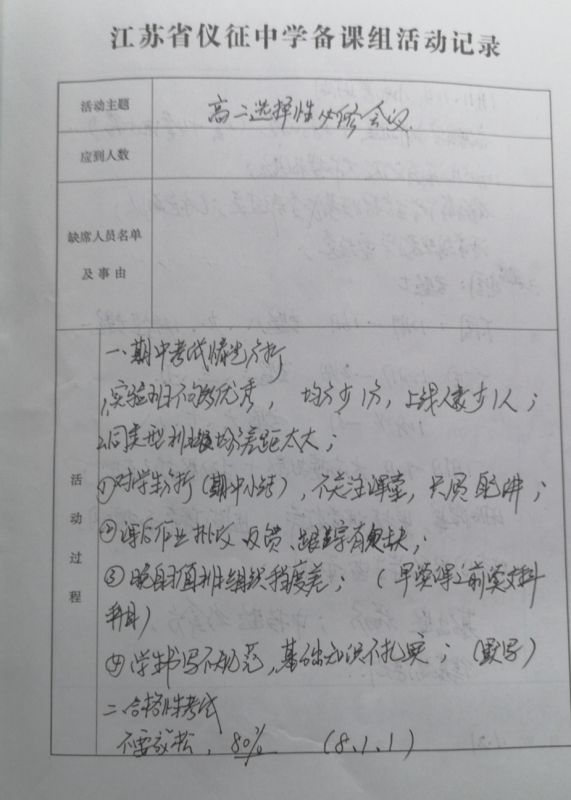 江苏省仪征中学备课组活动记录
活动主题
高二选择性必修会议
应到人数
缺席人员名单
及事由
活动过程
一、期中考试情况分析
1、实验班不够优秀，均分少1分，上线人数少1人；
2、同类型班级均分差距太大；
①对学生分析（期中小结），不关注课堂，只顾
②课后作业批改、反馈、跟踪有缺；
③晚自习值班组织程度差；（早
④学生书写不规范，基础知识不扎实；（默写）
二、合格性考试
不要放松，80%（8.1.1）